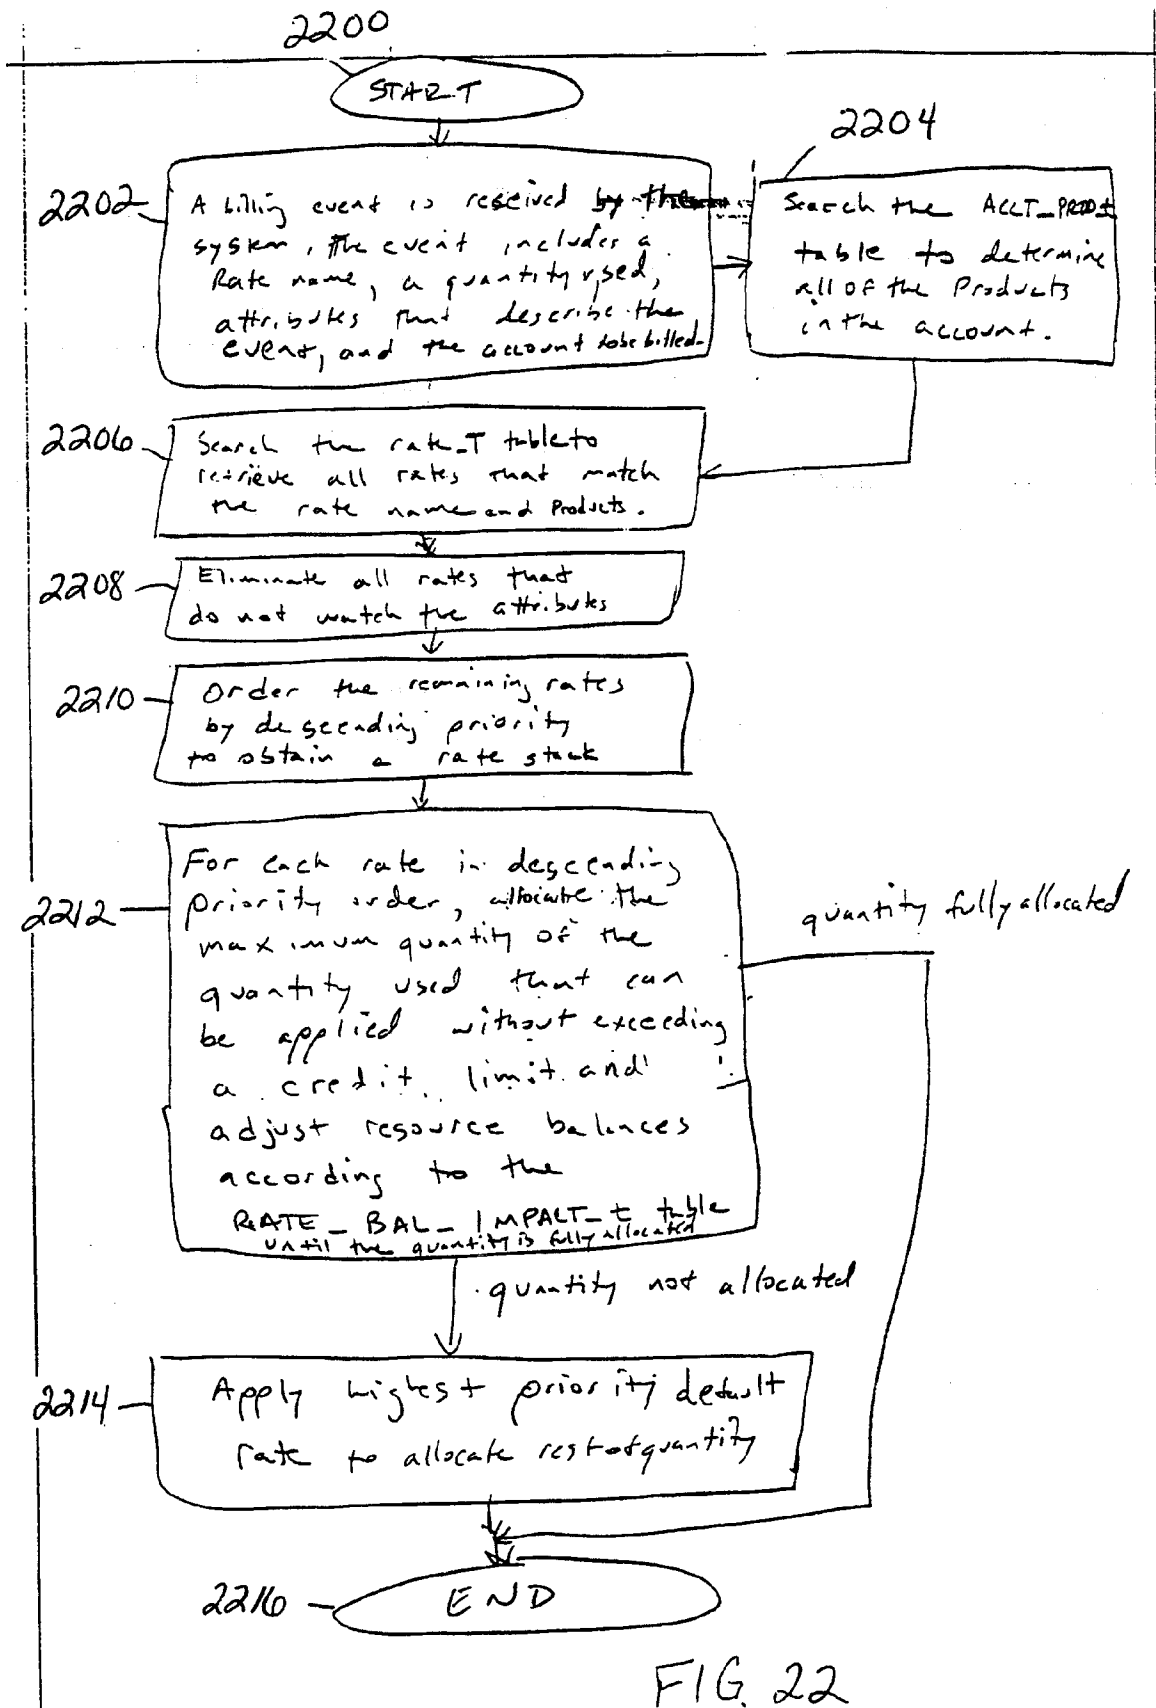 2200
START
2202
A billing event is received by the
system, the event includes a
Rate name, a quantity used,
attributes that describe the
event, and the account to be billed.
2204
Search the ACCT_PROD_t
table to determine
all of the Products
in the account.
2206
Search the rate_T table to
retrieve all rates that match
the rate name and Products.
2208
Eliminate all rates that
do not match the attributes
2210
Order the remaining rates
by descending priority
to obtain a rate stack
2212
For each rate in descending
priority order, allocate the
maximum quantity of the
quantity used that can
be applied without exceeding
a credit limit and
adjust resource balances
according to the
RATE_BAL_IMPACT_t table
until the quantity is fully allocated
quantity fully allocated
quantity not allocated
2214
Apply highest priority default
rate to allocate rest of quantity
2216
END
FIG. 22